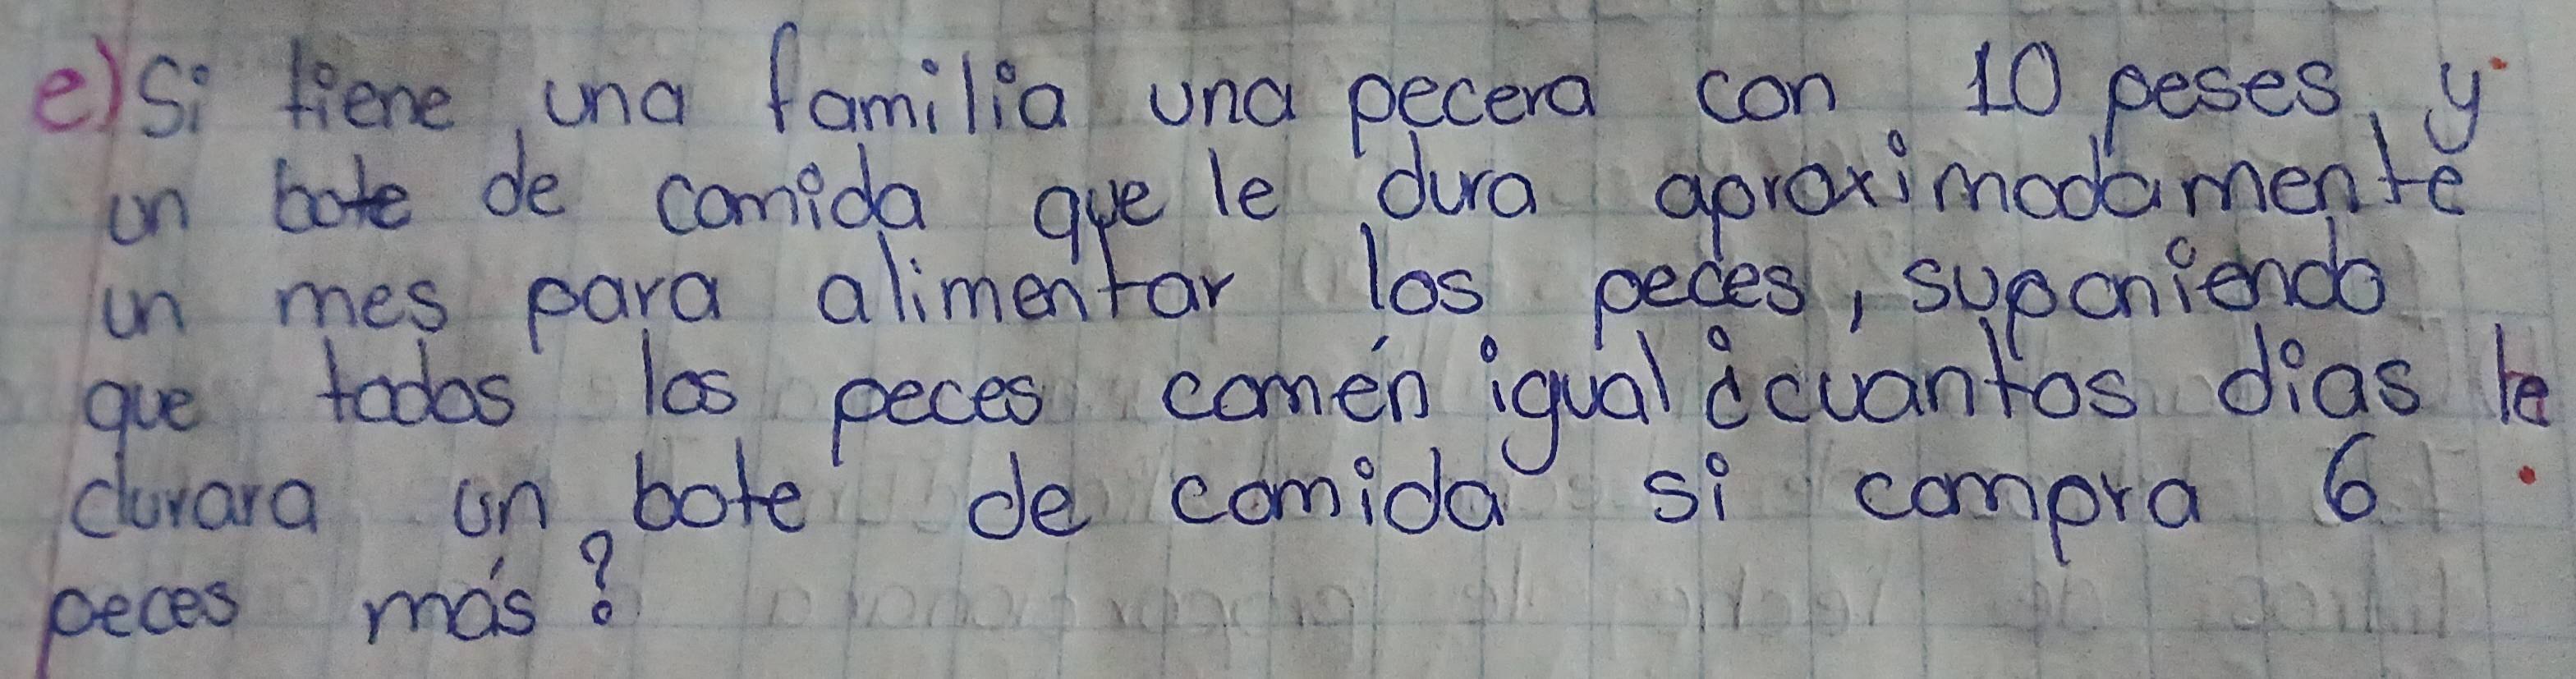 e) Si tiene una familia una pecera con 10 peses, y
un bote de comida que le dura aproximadamente
un mes para alimentar los peces, suponiendo
que todos los peces comén igual ¿cuantos dias le
durara un bote de comida si compra 6
peces más?